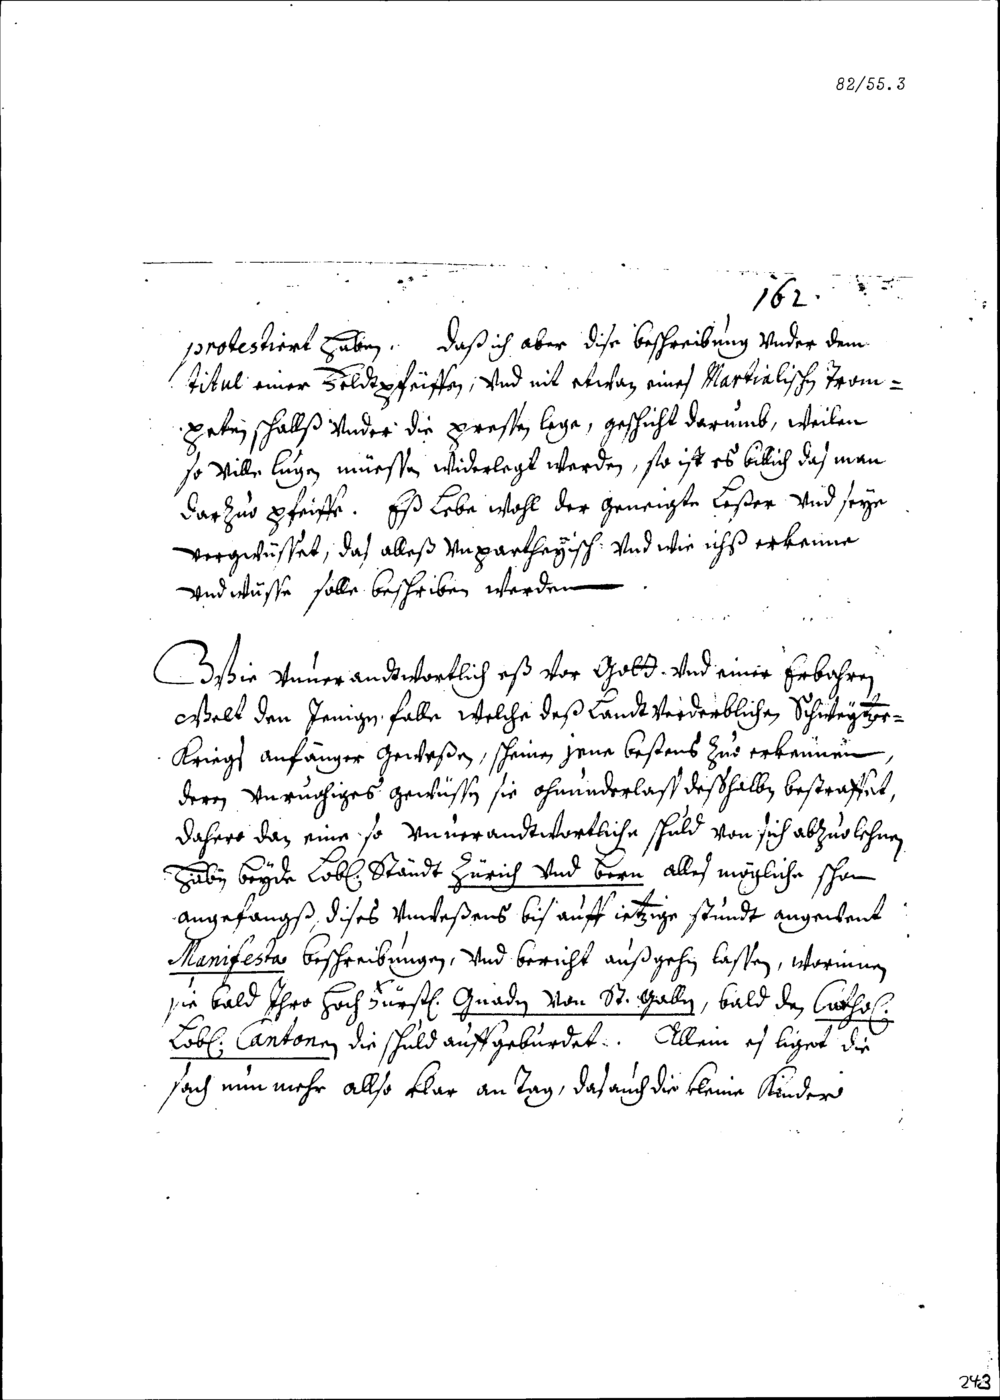 82/55.3
162.
protestiert haben. Daß ich aber dise beschreibung Vnder dem
titul einer Feldtpfeiffen, Vnd nit etwan eines Martialischen Trom=
peten schallß Vnder die pressen lege, geschicht darumb, weilen
so Ville lugen müessen widerlegt werden, so ist es billich das man
darzuo pfeiffe. Eß Lebe wohl der geneigte Leßer Vnd seye
vergwüsset, das alleß Vnpartheyisch Vnd wie ichß erkenne
vnd wüsse solle beschriben werden
Wie Vnuerandtwortlich eß Vor Gott Vnd einer Erbahren
Welt den Jenigen falle welche deß Landt Verderblichen Schweytzer=
Kriegs anfänger geweßen, scheinen jene bestens zuo erkennen,
deren Vnruohiges gewüssen sie ohnunderlass desshalben bestraffet,
dahero dan eine so Vnuerandtwortliche schuld von sich abzuolehnen
haben beyde Lobl: Ständt Zürich Vnd Bern alles mögliche schon
angefangß dises Vnweßens bis auff ietzige stundt angewent
Manifesta beschreibungen, Vnd bericht außgehen lassen, worinnen
sie bald Ihro Hoch Fürstl: Gnaden Von St. Gallen, bald den Cathol:
Lobl: Cantonen die schuld auffgebürdet. Allein es liget die
sach nun mehr allso klar an Tag, das auch die kleine Kinder
243